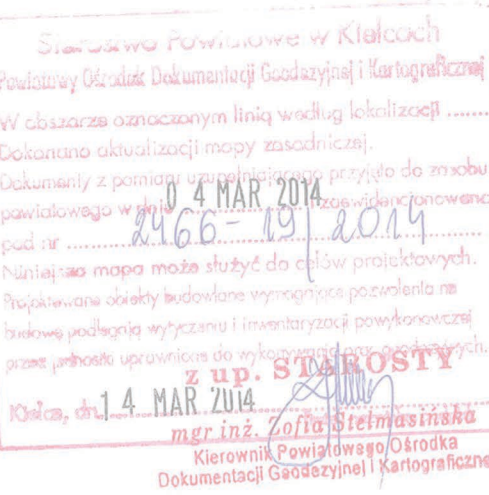 Starostwo Powiatowe w Kielcach
Powiatowy Ośrodek Dokumentacji Geodezyjnej i Kartograficznej
W obszarze oznaczonym linią według lokalizacji ........
Dokonano aktualizacji mapy zasadniczej.
Dokumenty z pomiaru uzupełniającego przyjęto do zasobu
powiatowego w dniu 0 4 MAR 2014 zaewidencjonowano
pod nr ........ 2466-19/2014
Niniejsza mapa może służyć do celów projektowych.
Projektowane obiekty budowlane wymagające pozwolenia na
budowę podlegają wytyczeniu i inwentaryzacji powykonawczej
przez jednostki uprawnione do wykonywania prac geodezyjnych.
z up. STAROSTY
Kielce, dn. 1 4 MAR 2014
mgr inż. Zofia Stelmasińska
Kierownik Powiatowego Ośrodka
Dokumentacji Geodezyjnej i Kartograficzne